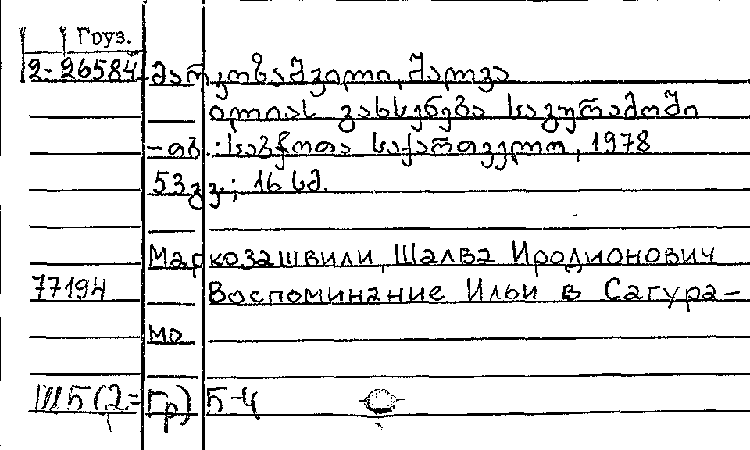 Груз.
2-26584 მარკოზაშვილი, შალვა
ილიას გახსენება საგურამოში
-თბ.: საბჭოთა საქართველო, 1978
53 გვ.; 16 სმ.
Маркозашвили, Шалва Иродионович
77194 Воспоминание Ильи в Сагура-
мо
Ш5(2=Гр) 5-4